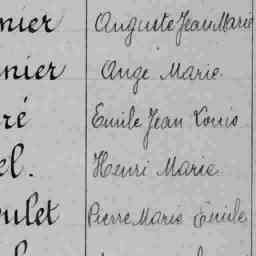 nier Auguste Jean Marie
nier Ange Marie
ré Emile Jean Louis
el. Henri Marie
ulet Pierre Marie Emile